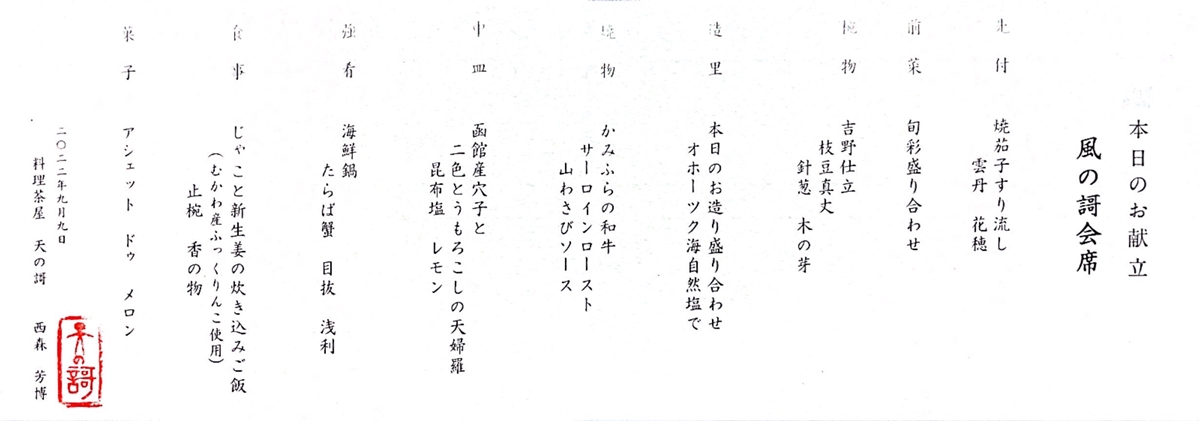 本日のお献立
風の謌会席
先付 焼茄子すり流し
雲丹 花穂
前菜 旬彩盛り合わせ
椀物 吉野仕立
枝豆真丈
針葱 木の芽
造里 本日のお造り盛り合わせ
オホーツク海自然塩で
焼物 かみふらの和牛
サーロインロースト
山わさびソース
中皿 函館産穴子と
二色とうもろこしの天婦羅
昆布塩 レモン
強肴 海鮮鍋
たらば蟹 目抜 浅利
食事 じゃこと新生姜の炊き込みご飯
(むかわ産ふっくりんこ使用)
止椀 香の物
菓子 アシェット ドゥ メロン
二〇二二年九月九日
料理茶屋 天の謌 西森 芳博
天の謌